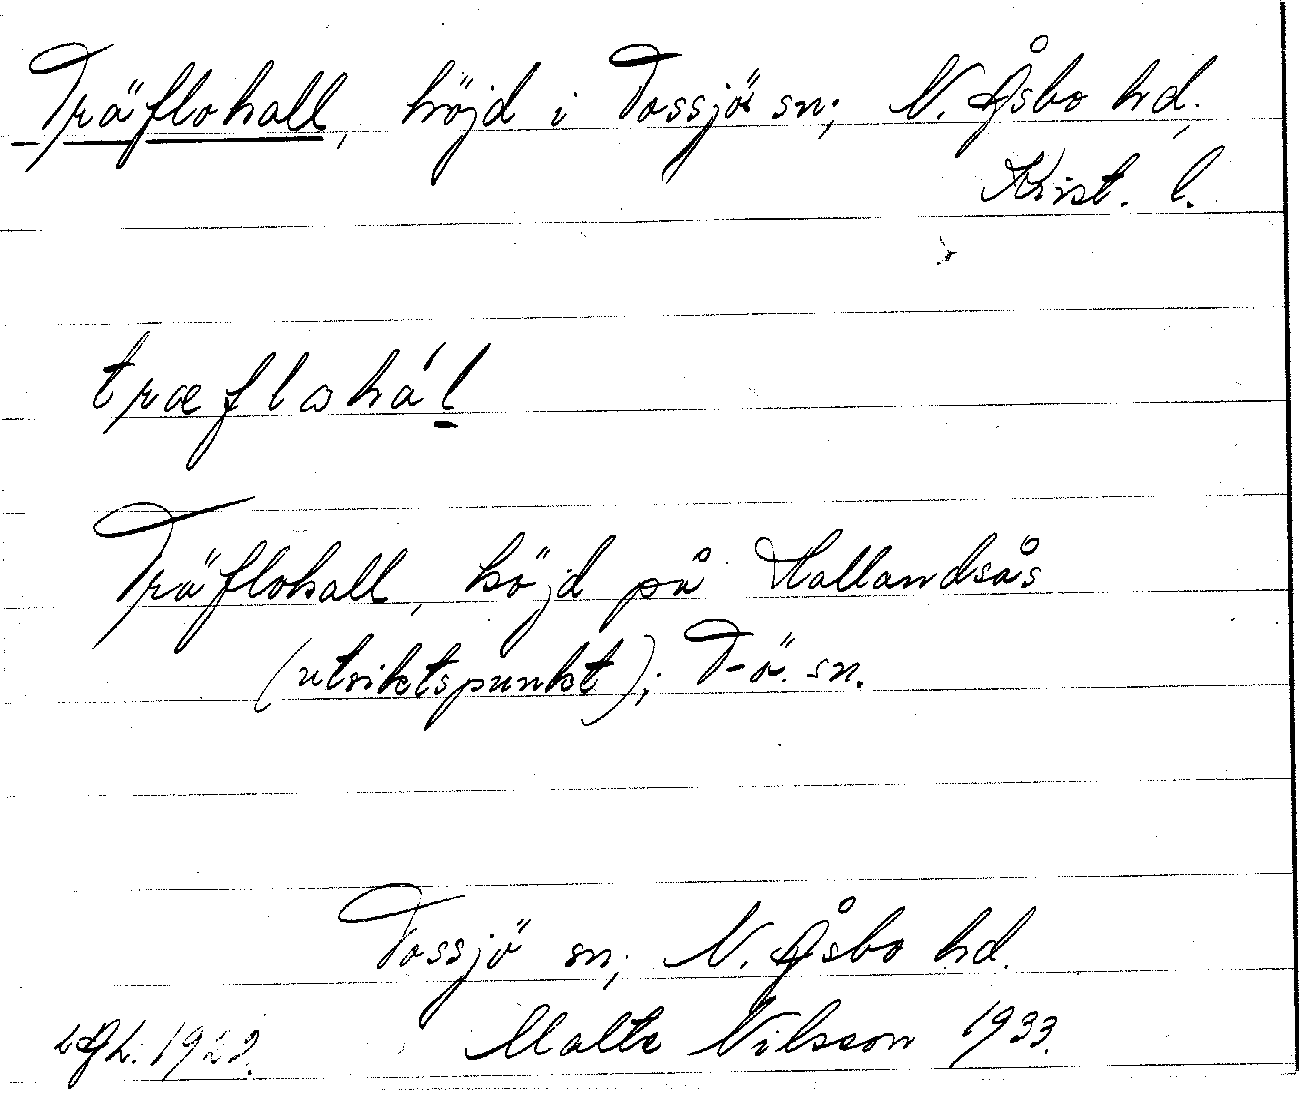 Träflohall, höjd i Tossjö sn; N. Åsbo hd,
Krist. l.
træflohál
Träflohall, höjd på Hallandsås
(utsiktspunkt); T-ö. sn.
Tossjö sn; N. Åsbo hd.
Malte Nilsson 1933.